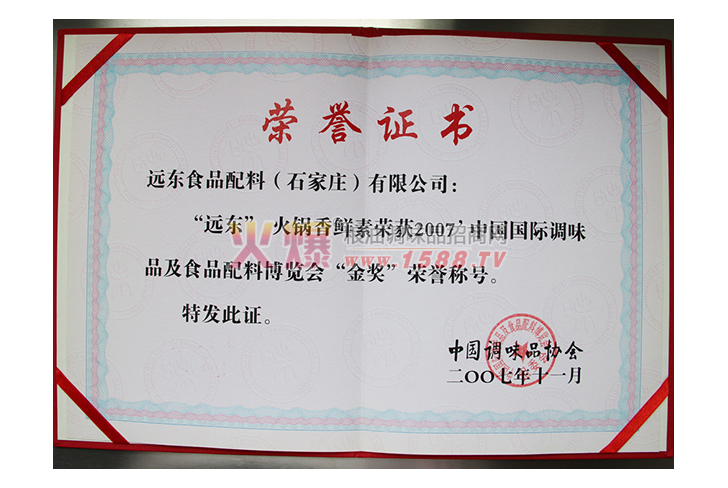 荣誉证书
远东食品配料（石家庄）有限公司：
“远东” 火锅香鲜素荣获2007’中国国际调味
火爆 粮油调味品招商网
www.1588.TV
品及食品配料博览会“金奖”荣誉称号。
特发此证。
中国调味品协会
二〇〇七年十一月